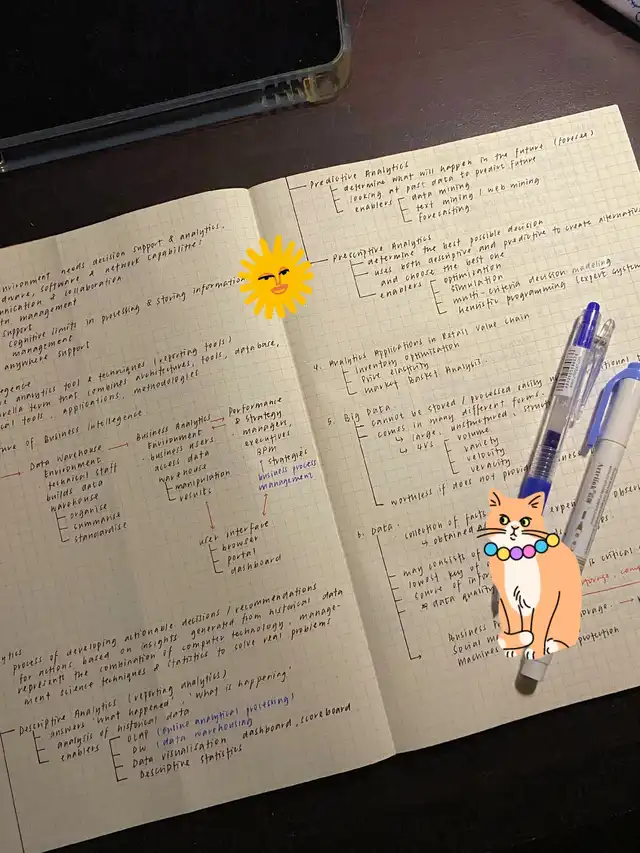 environment needs decision support & analytics.
software & network capabilities:
& collaboration
management
support
cognitive limits in processing & storing information
management
anywhere support
analytics tool & techniques (reporting tools)
term that combines architectures, tools, database,
tools, applications, methodologies
of Business Intelligence
Data Warehouse
Environment
technical staff
builds data
warehouse
organise
summarise
standardise
Business Analytics
Environment
business users
access data
warehouse
manipulation
results
Performance
& Strategy
managers,
executives
BPM
strategies
business process
management
user interface
browser
portal
dashboard
process of developing actionable decisions / recommendations
for actions, based on insights generated from historical data
represents the combination of computer technology, manage-
ment science techniques & statistics to solve real problems
Descriptive Analytics (reporting analytics)
answers 'what happened', 'what is happening'
analysis of historical data
enablers
OLAP (online analytical processing)
DW (data warehousing)
Data visualisation dashboard, scoreboard
Descriptive statistics
Predictive Analytics
determine what will happen in the future
looking at past data to predict future
enablers
data mining
text mining / web mining
forecasting
Prescriptive Analytics
determine the best possible decision
uses both descriptive and predictive to create
and choose the best one
enablers
optimization
simulation
multi-criteria decision modeling
heuristic programming (expert
4. Analytics Applications in Retail Value Chain
Inventory optimisation
Price elasticity
Market Basket Analysis
5. Big Data
cannot be stored / processed easily
comes in many different forms.
large, unstructured,
4Vs
volume
variety
velocity
veracity
worthless if does not provide
Data
collection of
obtained
may consists of
lowest key of
source of
data
is critical
Business
Social
machines